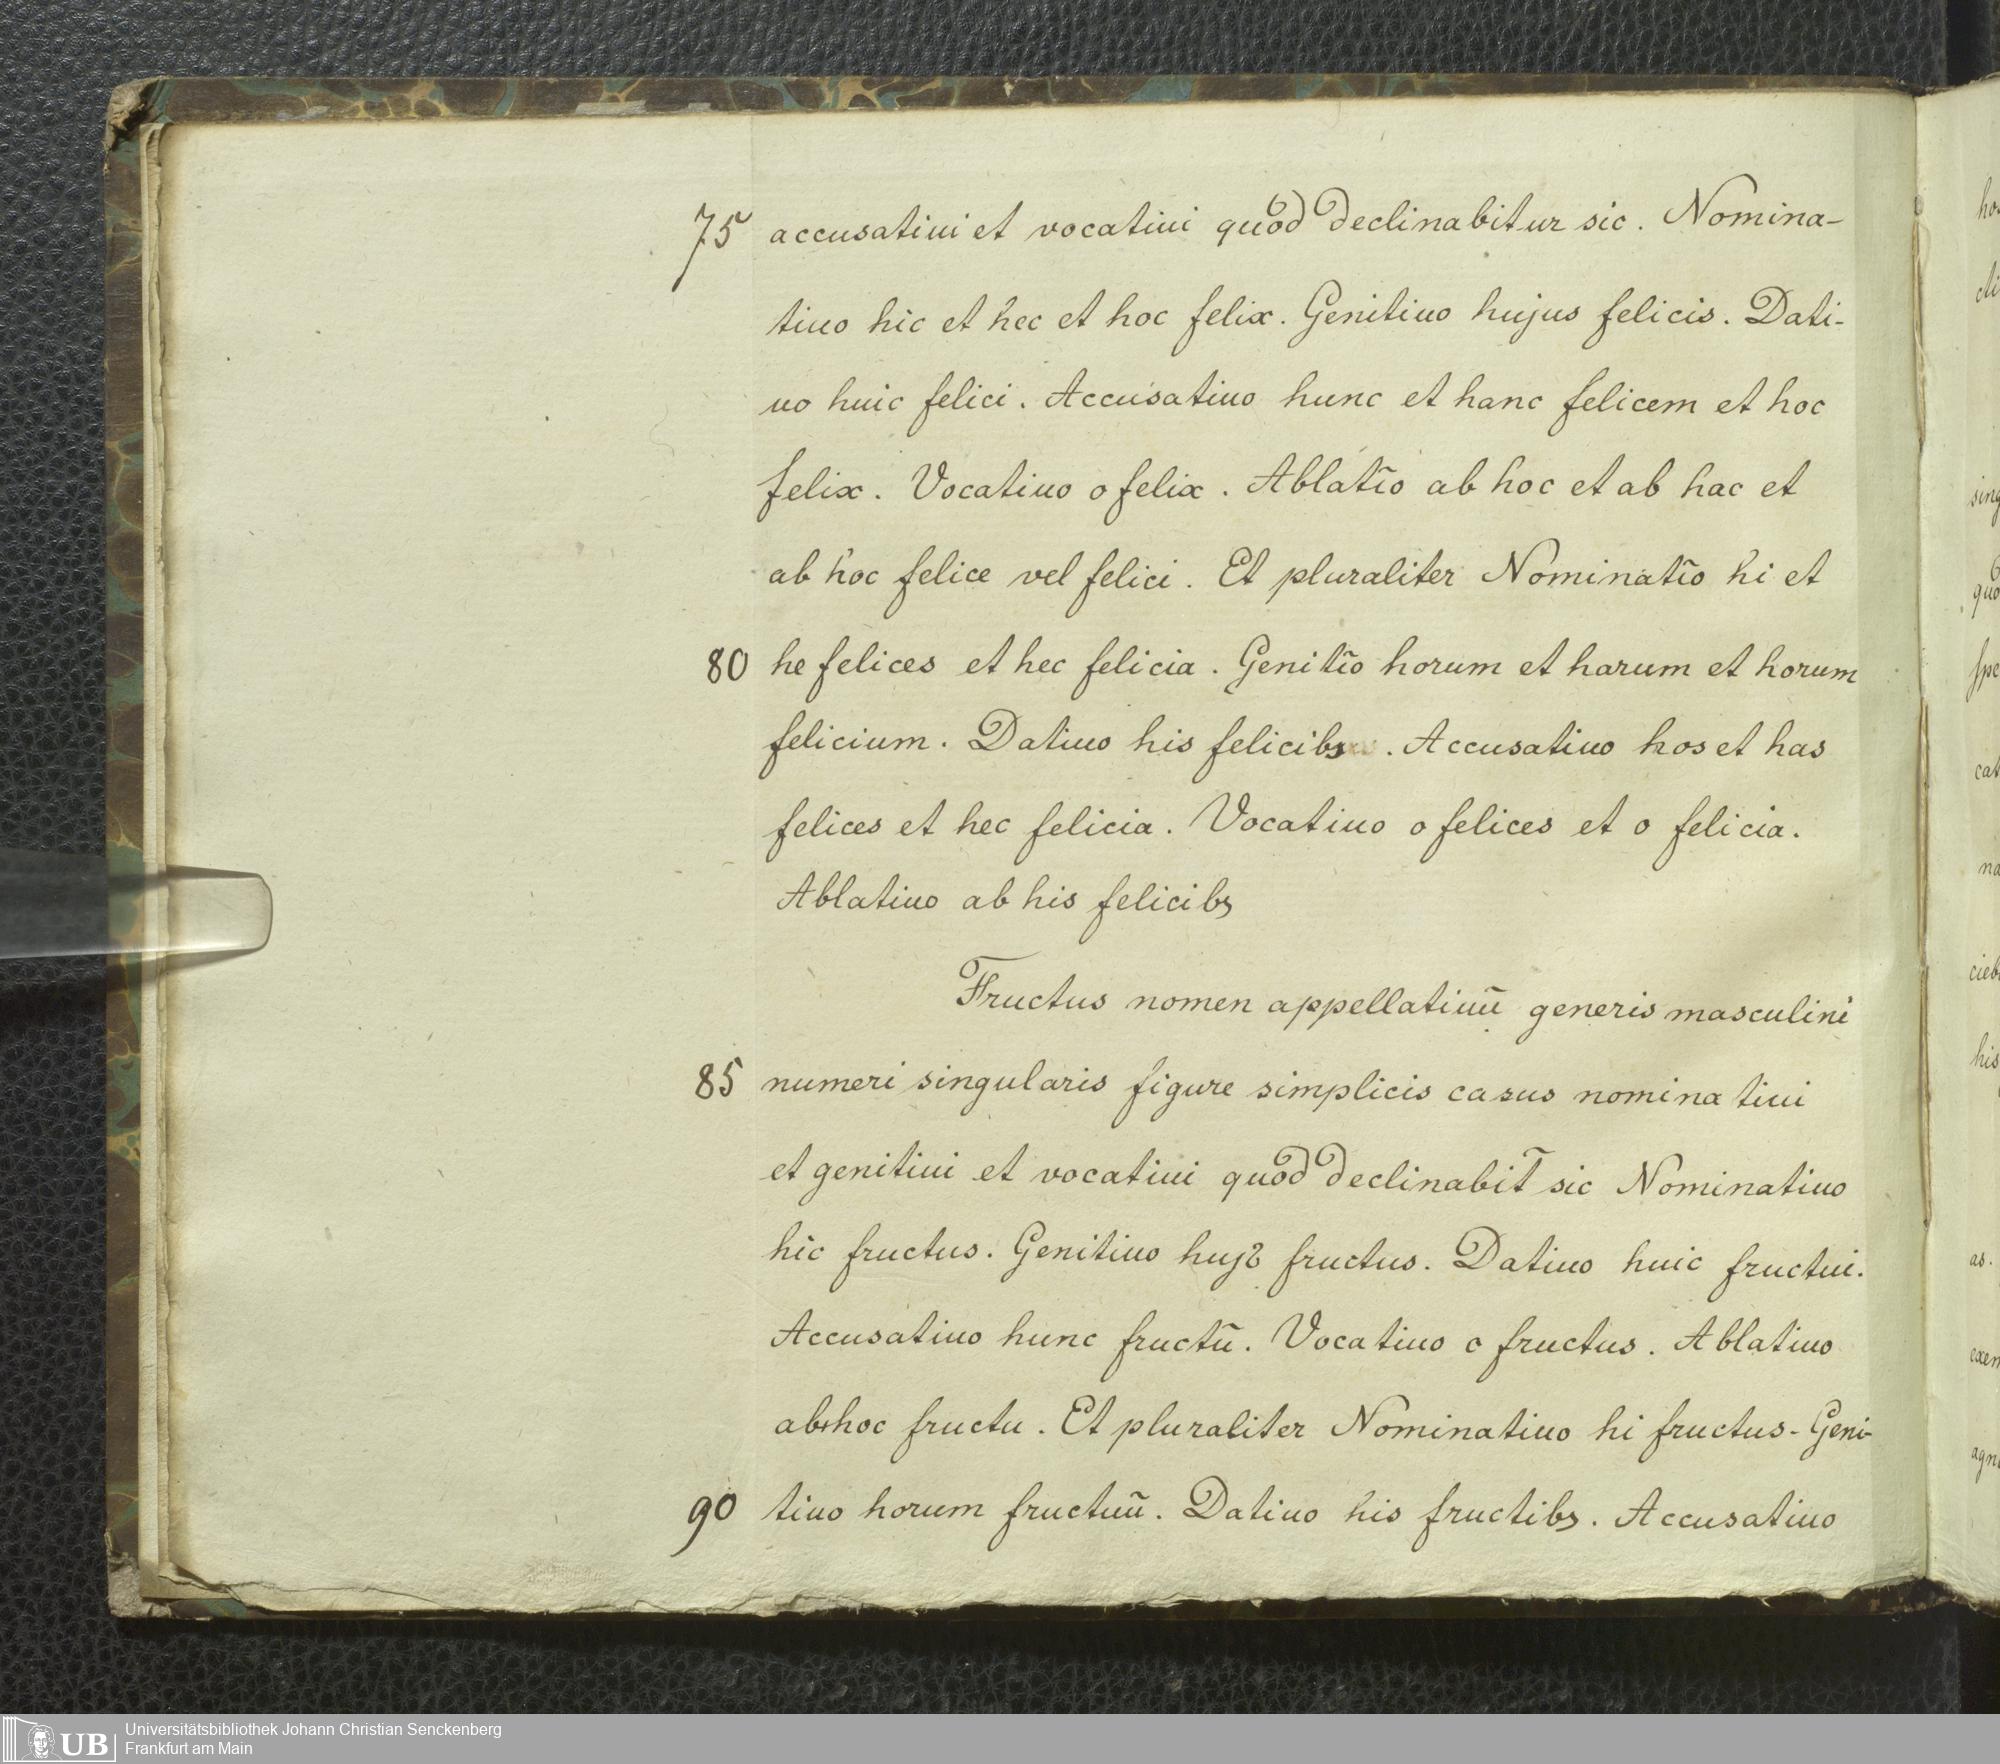 75 accusatiui et vocatiui quod declinabitur sic. Nomina-
tiuo hic et hec et hoc felix. Genitiuo hujus felicis. Dati-
uo huic felici. Accusatiuo hunc et hanc felicem et hoc
felix. Vocatiuo o felix. Ablatĩo ab hoc et ab hac et
ab hoc felice vel felici. Et pluraliter Nominatĩo hi et
80 he felices et hec felicia. Genitĩo horum et harum et horum
felicium. Datiuo his felicibꝫ. Accusatiuo hos et has
felices et hec felicia. Vocatiuo o felices et o felicia.
Ablatiuo ab his felicibꝫ
Fructus nomen appellatiuũ generis masculini
85 numeri singularis figure simplicis casus nominatiui
et genitiui et vocatiui quod declinabit̃ sic Nominatiuo
hic fructus. Genitiuo hujꝰ fructus. Datiuo huic fructui.
Accusatiuo hunc fructũ. Vocatiuo o fructus. Ablatiuo
ab hoc fructu. Et pluraliter Nominatiuo hi fructus- Geni-
90 tiuo horum fructuũ. Datiuo his fructibꝫ. Accusatiuo
UB
Universitätsbibliothek Johann Christian Senckenberg
Frankfurt am Main